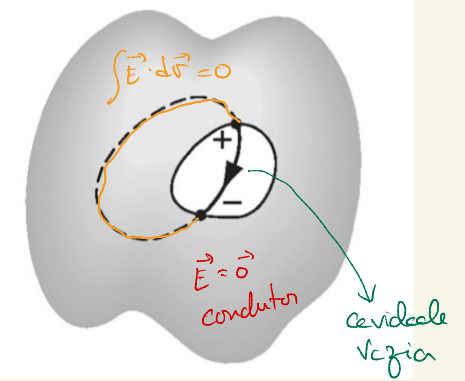 ∫E⃗·dr⃗ = 0
+
−
E⃗ = 0⃗
condutor
cavidade
vazia